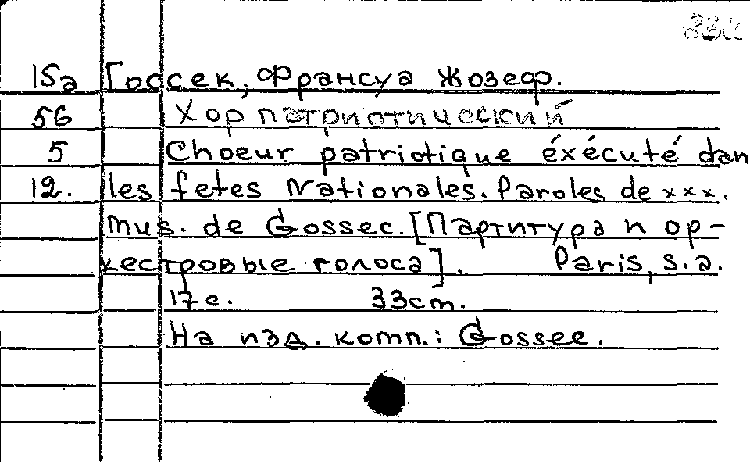 15а Госсек, Франсуа Жозеф.
56 Хор патриотический
5 Choeur patriotique éxécuté dan
12. les fetes Nationales. Paroles de xxx.
Mus. de Gossec. [Партитура и ор-
кестровые голоса]. Paris, s.a.
17 с. 33 cm.
На изд. комп.: Gossec.